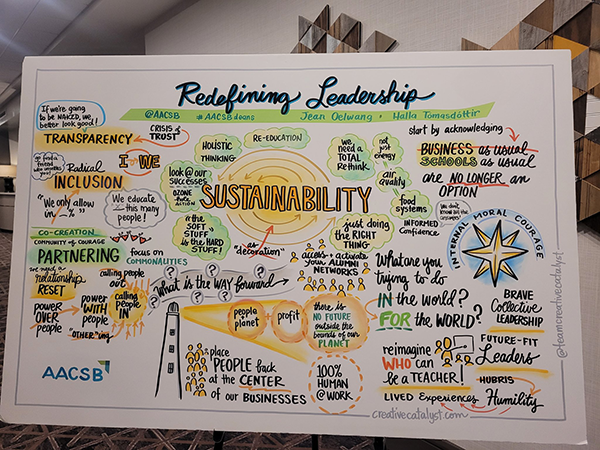 Redefining Leadership
@AACSB
#AACSBdeans
Jean Oelwang • Halla Tómasdóttir
If we're going
to be NAKED, we
better look good!
TRANSPARENCY
CRISIS of
TRUST
I to WE
go find a
friend
who
Radical
INCLUSION
"We only allow
in _%"
We educate
this many
people!
CO-CREATION
COMMUNITY of COURAGE
PARTNERING
focus on
COMMONALITIES
we need a
relationship
RESET
calling people
out
power
OVER
people
power
WITH
people
calling
people
IN
"OTHER"ing
AACSB
HOLISTIC
THINKING
RE-EDUCATION
look @ our
SUCCESSES
OZONE
HOLE
ACTION
SUSTAINABILITY
the
SOFT
STUFF
is the HARD
STUFF!
"as
decoration"
we
need a
TOTAL
Re-think
not
just
energy
air
quality
food
systems
just doing
the RIGHT
THING
INFORMED
Confidence
access + activate
ALUMNI
NETWORKS
what is the WAY forward
? ? ? ? ?
people
planet
+
profit
there is
NO FUTURE
outside the
bounds of our
PLANET
place
PEOPLE back
at the CENTER
of our BUSINESSES
100%
HUMAN
@ WORK
start by acknowledging
BUSINESS as usual
SCHOOLS as usual
are NO LONGER an
OPTION
you don't
know all the
answers!
INTERNAL MORAL COURAGE
What are you
trying to do
IN the world?
FOR the WORLD?
BRAVE
Collective
LEADERSHIP
reimagine
WHO can
be a TEACHER!
FUTURE-FIT
Leaders
HUBRIS
LIVED Experiences
Humility
creativecatalyst.com
@teamcreativecatalyst